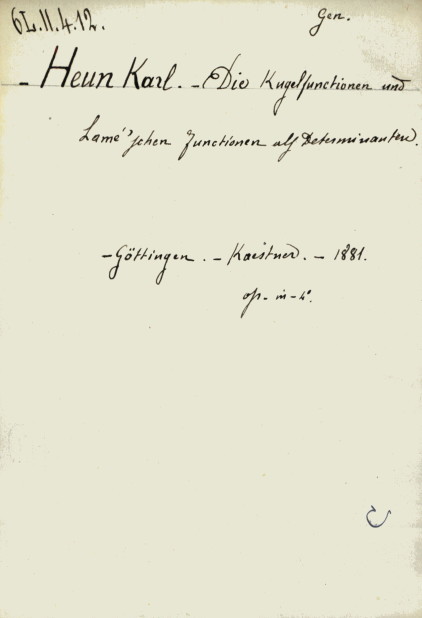 6L.II.4.12.
Gen.
- Heun Karl. - Die Kugelfunctionen und
Lamé'schen Functionen als Determinanten.
- Göttingen. - Kaestner. - 1881.
op. in-4°.